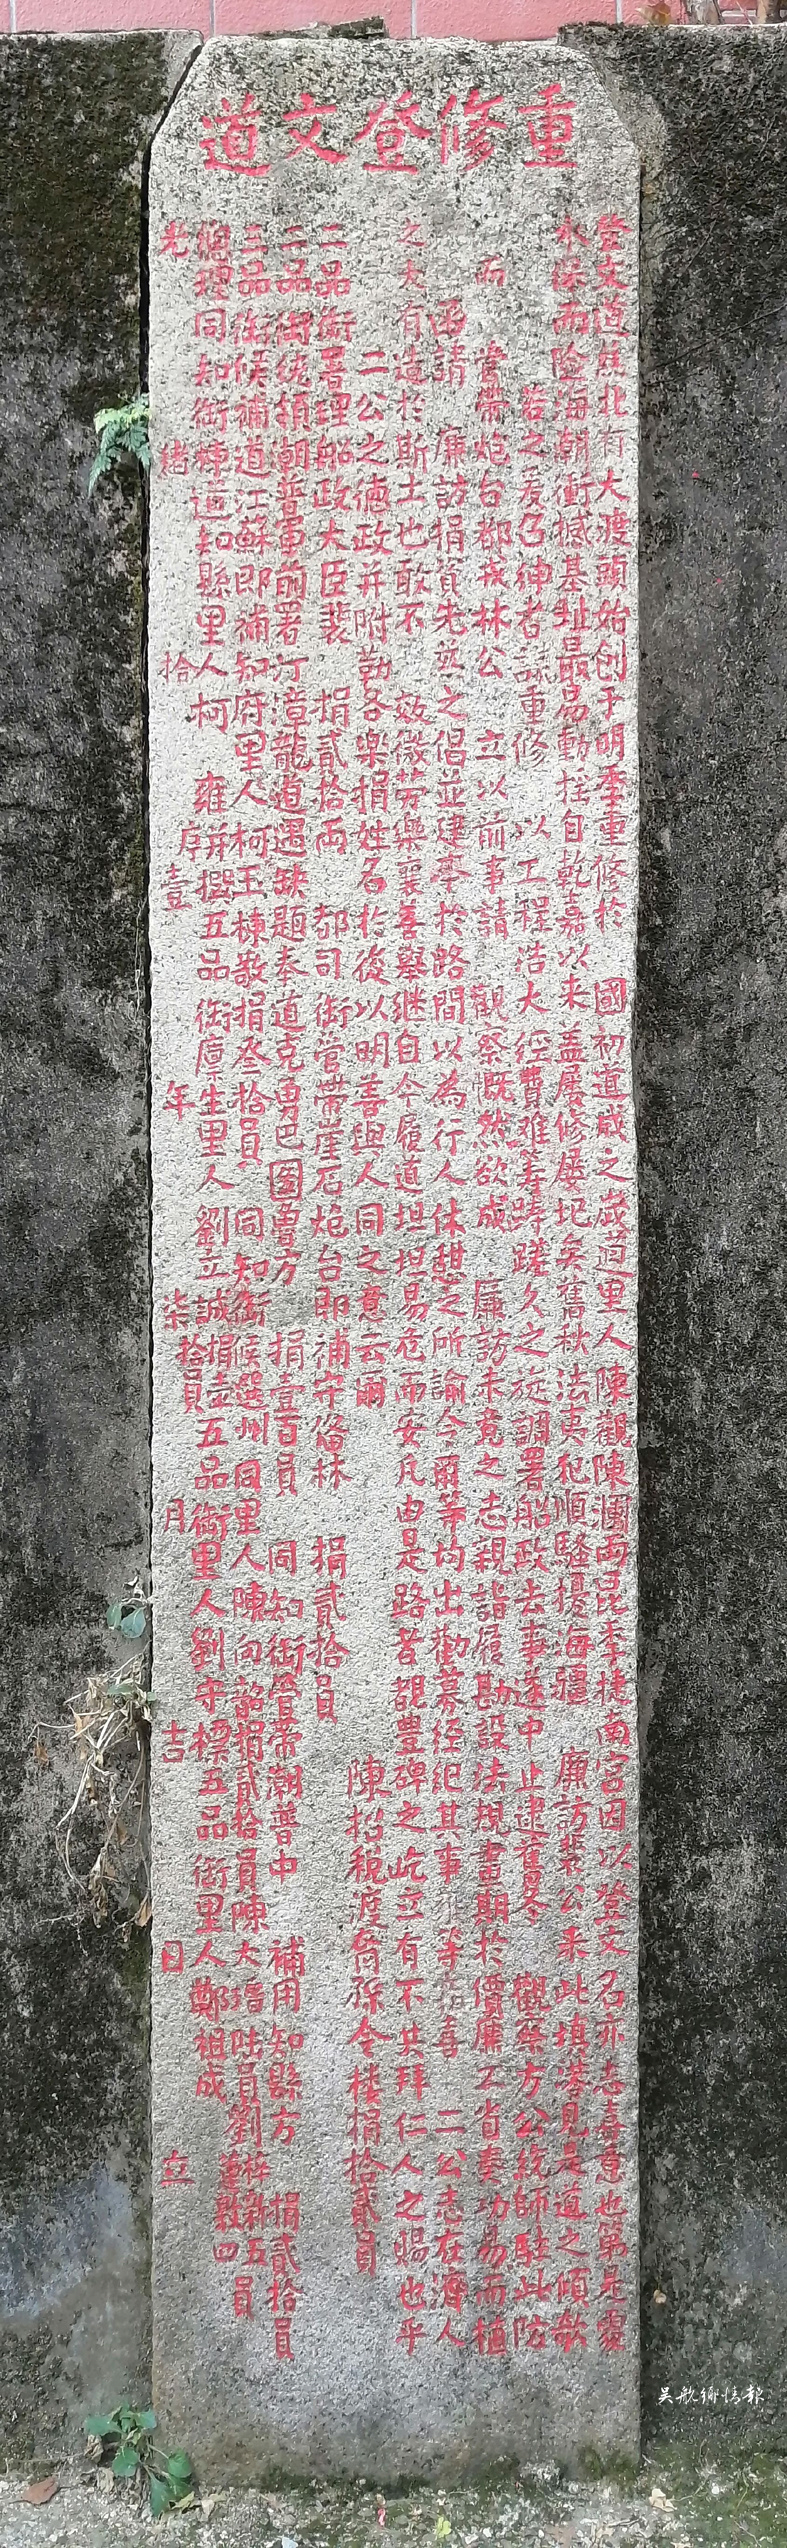 重修登文道
登文道炁北有大渡頭始创于明季重修於 國初道咸之嵗道里人陳觀陳瀾两昆季捷南宮因以登文名亦志喜意也第是處
水深而险海潮衝撼基址最易動揺自乾嘉以来盖屡修屡圮矣舊秋法夷犯順騷擾海疆 廉訪裴公来此填港見是道之傾欹
若之爰召紳耆謀重修 以工程浩大經費难筹踌蹉久之旋調署船政去事遂中止逮舊冬 觀察方公統師駐此防
而 管帶炮台都戎林公 立以前事請 觀察慨然欲成 廉訪未竟之志親詣履勘設法規畫期於價廉工省奏功易而植
函請 廉訪捐資先㒰之倡並建亭於路間以為行人休憩之所諭令爾等均出勸募经纪其事 等 喜 二公志在濟人
之大有造於斯土也敢不 效微劳樂襄善舉继自今履道坦坦易危而安凡由是路者覩豊碑之屹立有不共拜仁人之賜也乎
二公之德政并附勒各樂捐姓名於後以明善與人同之意云爾 陳招税渡脊孫令楼捐拾貳員
二品衔署理船政大臣裴 捐貳拾两 都司衔管帶崖石炮台即補守備林 捐貳拾員
二品衔统領潮普軍前署汀漳龍道遇缺題奉道克勇巴圖魯方 捐壹百員 同知衔管带潮普中 補用知縣方 捐貳拾員
三品衔候補道江蘇即補知府里人柯玉棟敬捐叁拾員 同知衔候選州同里人陳向韶捐貳拾員陳大揩陆員劉梓新五員
總理同知衔候選知縣里人柯 雍序并撰五品衔廪生里人劉立誠捐壹拾員五品衔里人劉守樑五品衔里人鄭祖成 蓮數四
光緒拾壹年柒月吉日立
吴航鄉情報